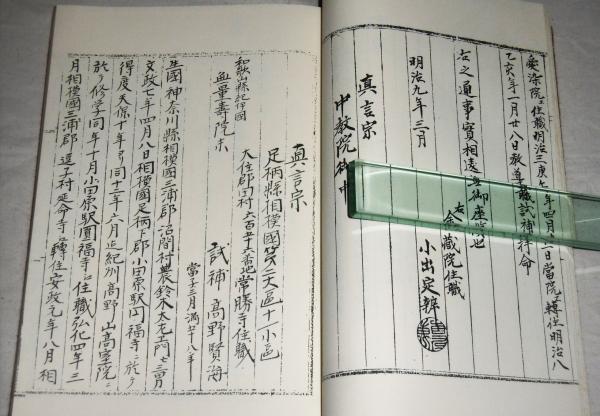 愛染院エ住職明治三庚午年四月二日當院エ轉住明治八
乙亥年一月廿八日教導職試補拝命
右之通事實相違無御座候也
右
金藏院住職
明治九年三月
小出定辨
眞言宗
中教院御中
眞言宗
足柄縣相模國第二大區十一小區
大住郡田村六百五十番地常勝寺住職
和歌山縣紀伊國
無量壽院末
試補 高野賢海
當子三月満
生國神奈川縣相模國三浦郡沼間村農鈴木太左エ門七三男
文政七年四月八日相模國足柄下郡小田原駅圓福寺ニ於テ
得度天保十年ヨリ同十二年六月迄紀州高野山高室院ニ
於テ修学同年十月小田原駅圓福寺エ住職弘化四年三
月相模國三浦郡逗子村延命寺エ轉住安政元年八月相